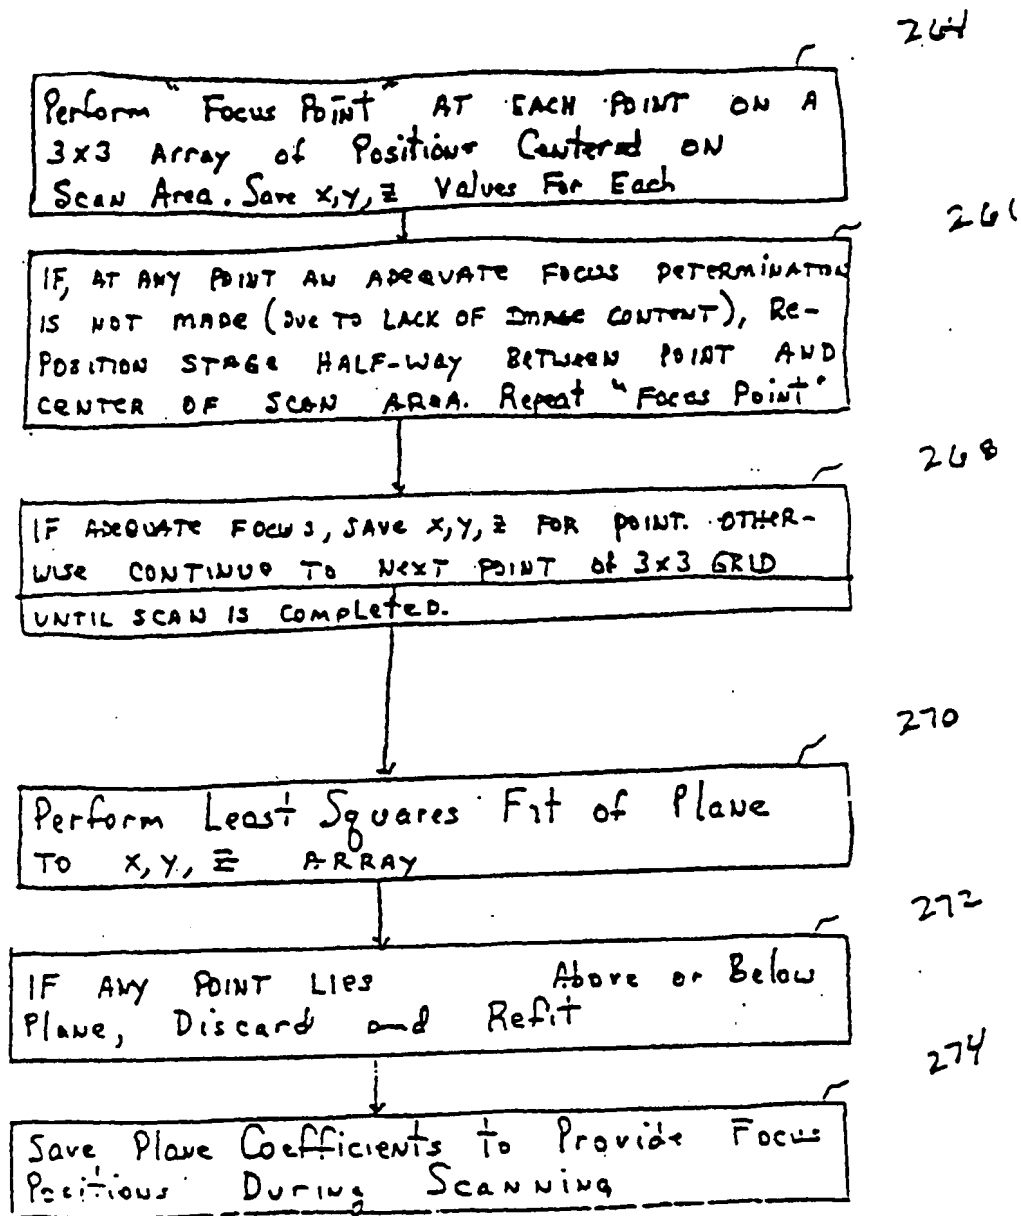 264
Perform "Focus Point" AT EACH POINT ON A
3x3 Array of Positions Centered ON
Scan Area. Save x, y, z Values For Each
IF, AT ANY POINT AN ADEQUATE FOCUS DETERMINATION
IS NOT MADE (DUE TO LACK OF IMAGE CONTENT), RE-
POSITION STAGE HALF-WAY BETWEEN POINT AND
CENTER OF SCAN AREA. Repeat "Focus Point"
268
IF ADEQUATE FOCUS, SAVE x, y, z FOR POINT. OTHER-
WISE CONTINUE TO NEXT POINT OF 3x3 GRID
UNTIL SCAN IS COMPLETED.
270
Perform Least Squares Fit of Plane
TO x, y, z ARRAY
272
IF ANY POINT LIES Above or Below
Plane, Discard and Refit
274
Save Plane Coefficients to Provide Focus
Positions During Scanning